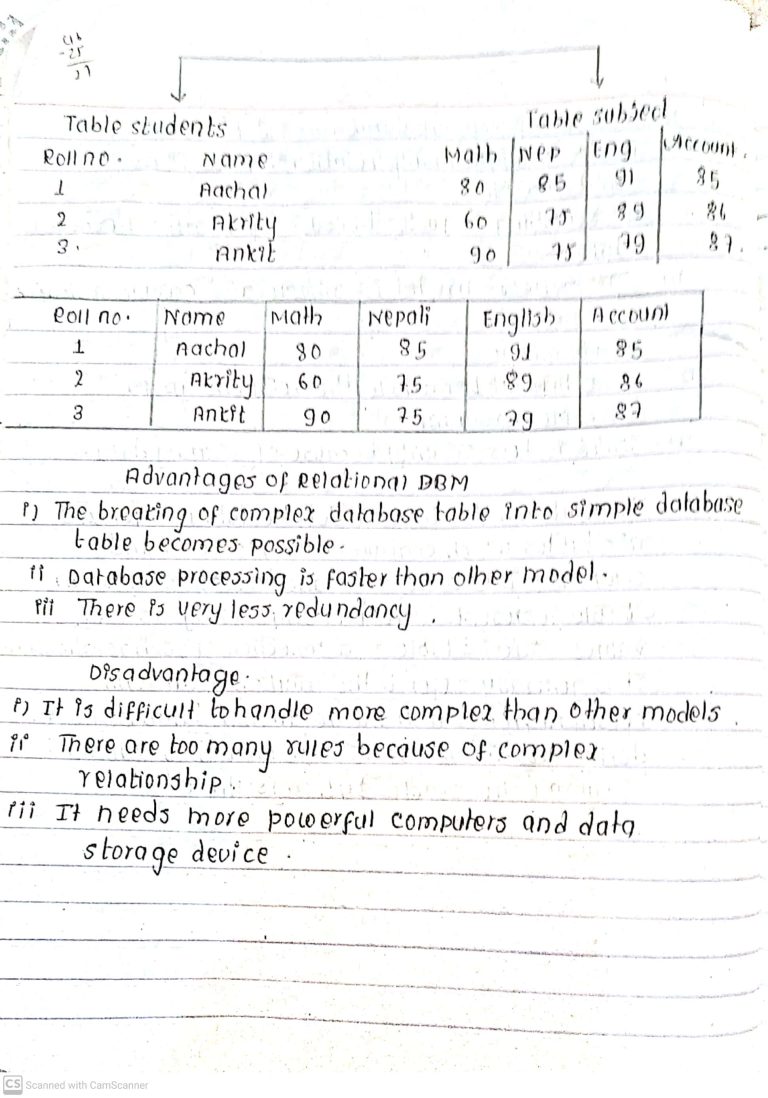 Table students
Table subject
Roll no. Name Math Nep Eng Account.
1 Aachal 80 85 91 85
2 Akrity 60 75 89 86
3. Ankit 90 75 79 87.
Roll no. Name Math Nepali English Account
1 Aachal 80 85 91 85
2 Akrity 60 75 89 86
3 Ankit 90 75 79 87
Advantages of Relational DBM
i) The breaking of complex database table into simple database
table becomes possible.
ii. Database processing is faster than other model.
iii There is very less redundancy.
Disadvantage.
i) It is difficult to handle more complex than other models.
ii There are too many rules because of complex
relationship.
iii It needs more powerful computers and data
storage device.
CS Scanned with CamScanner